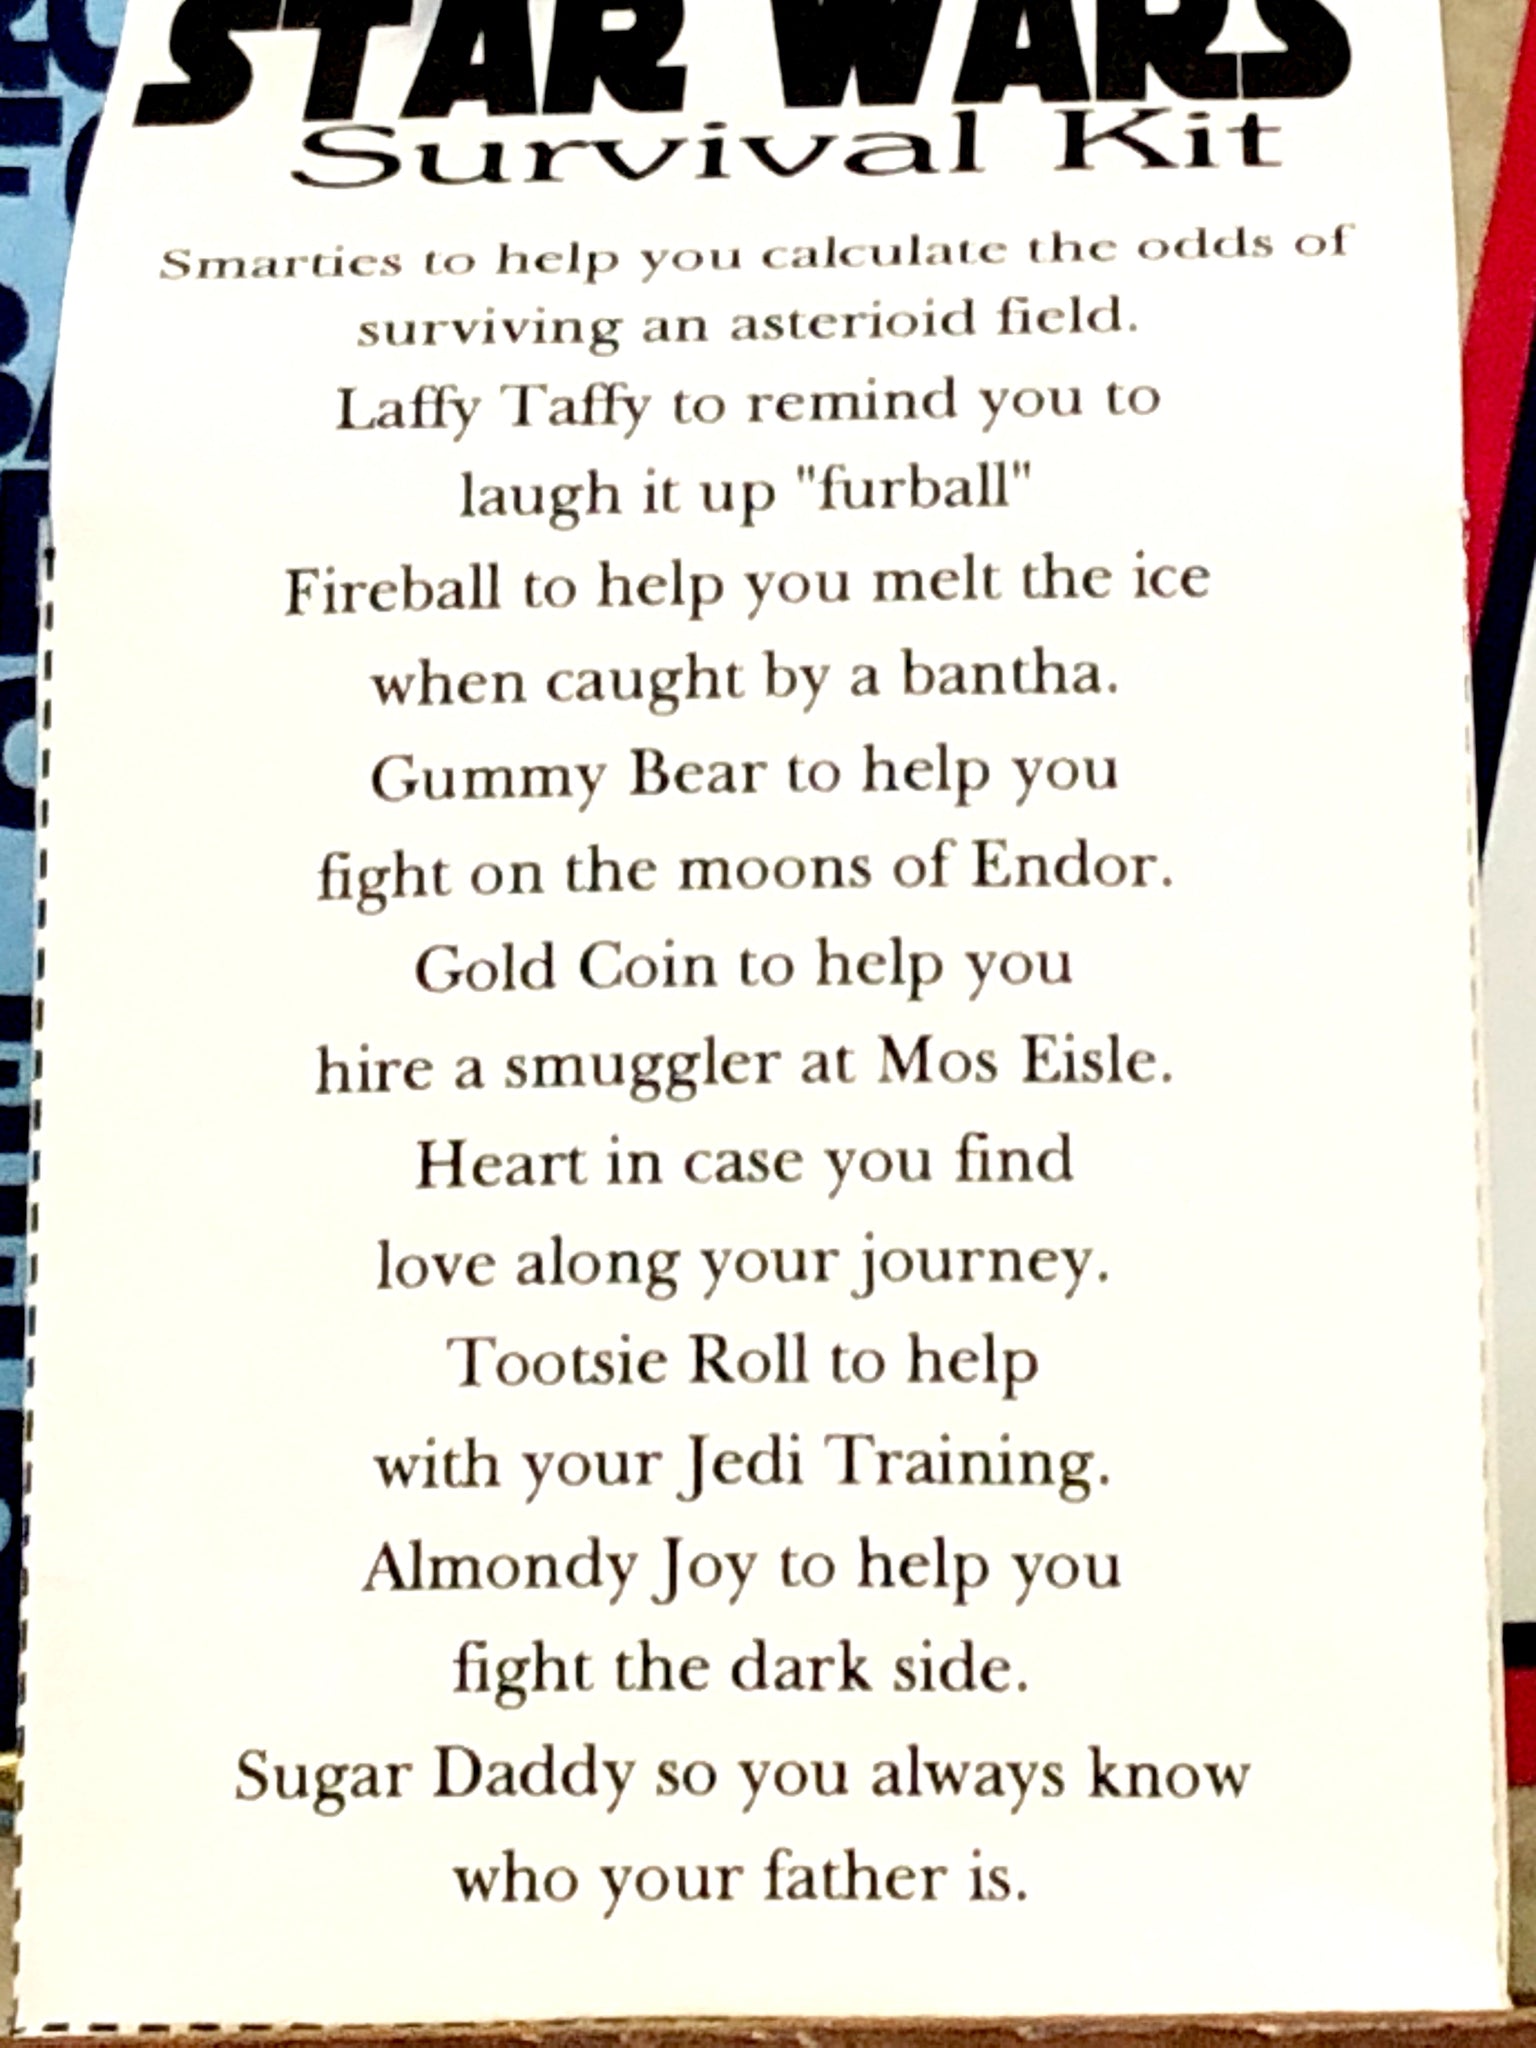 STAR WARS
Survival Kit
Smarties to help you calculate the odds of
surviving an asterioid field.
Laffy Taffy to remind you to
laugh it up "furball"
Fireball to help you melt the ice
when caught by a bantha.
Gummy Bear to help you
fight on the moons of Endor.
Gold Coin to help you
hire a smuggler at Mos Eisle.
Heart in case you find
love along your journey.
Tootsie Roll to help
with your Jedi Training.
Almondy Joy to help you
fight the dark side.
Sugar Daddy so you always know
who your father is.